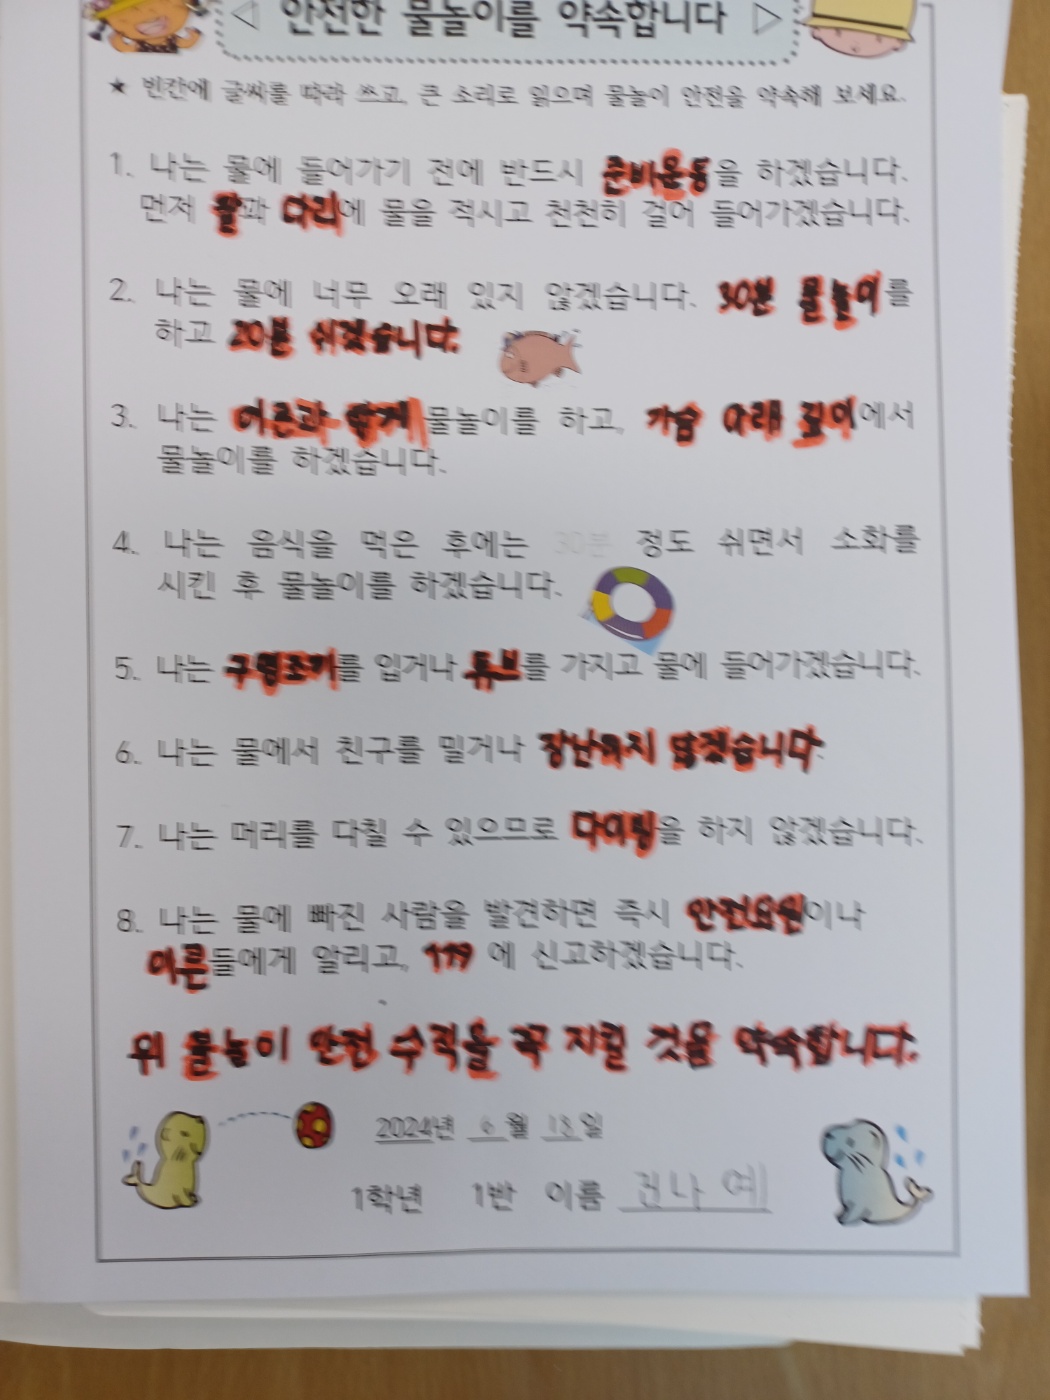 ◁ 안전한 물놀이를 약속합니다 ▷
★ 빈칸에 글씨를 따라 쓰고, 큰 소리로 읽으며 물놀이 안전을 약속해 보세요.
1. 나는 물에 들어가기 전에 반드시 준비운동을 하겠습니다.
먼저 팔과 다리에 물을 적시고 천천히 걸어 들어가겠습니다.
2. 나는 물에 너무 오래 있지 않겠습니다. 30분 물놀이를
하고 20분 쉬겠습니다.
3. 나는 어른과 함께 물놀이를 하고, 가슴 아래 깊이에서
물놀이를 하겠습니다.
4. 나는 음식을 먹은 후에는 30분 정도 쉬면서 소화를
시킨 후 물놀이를 하겠습니다.
5. 나는 구명조끼를 입거나 튜브를 가지고 물에 들어가겠습니다.
6. 나는 물에서 친구를 밀거나 장난치지 않겠습니다.
7. 나는 머리를 다칠 수 있으므로 다이빙을 하지 않겠습니다.
8. 나는 물에 빠진 사람을 발견하면 즉시 안전요원이나
어른들에게 알리고, 119 에 신고하겠습니다.
위 물놀이 안전 수칙을 꼭 지킬 것을 약속합니다.
2024년 6월 13일
1학년 1반 이름